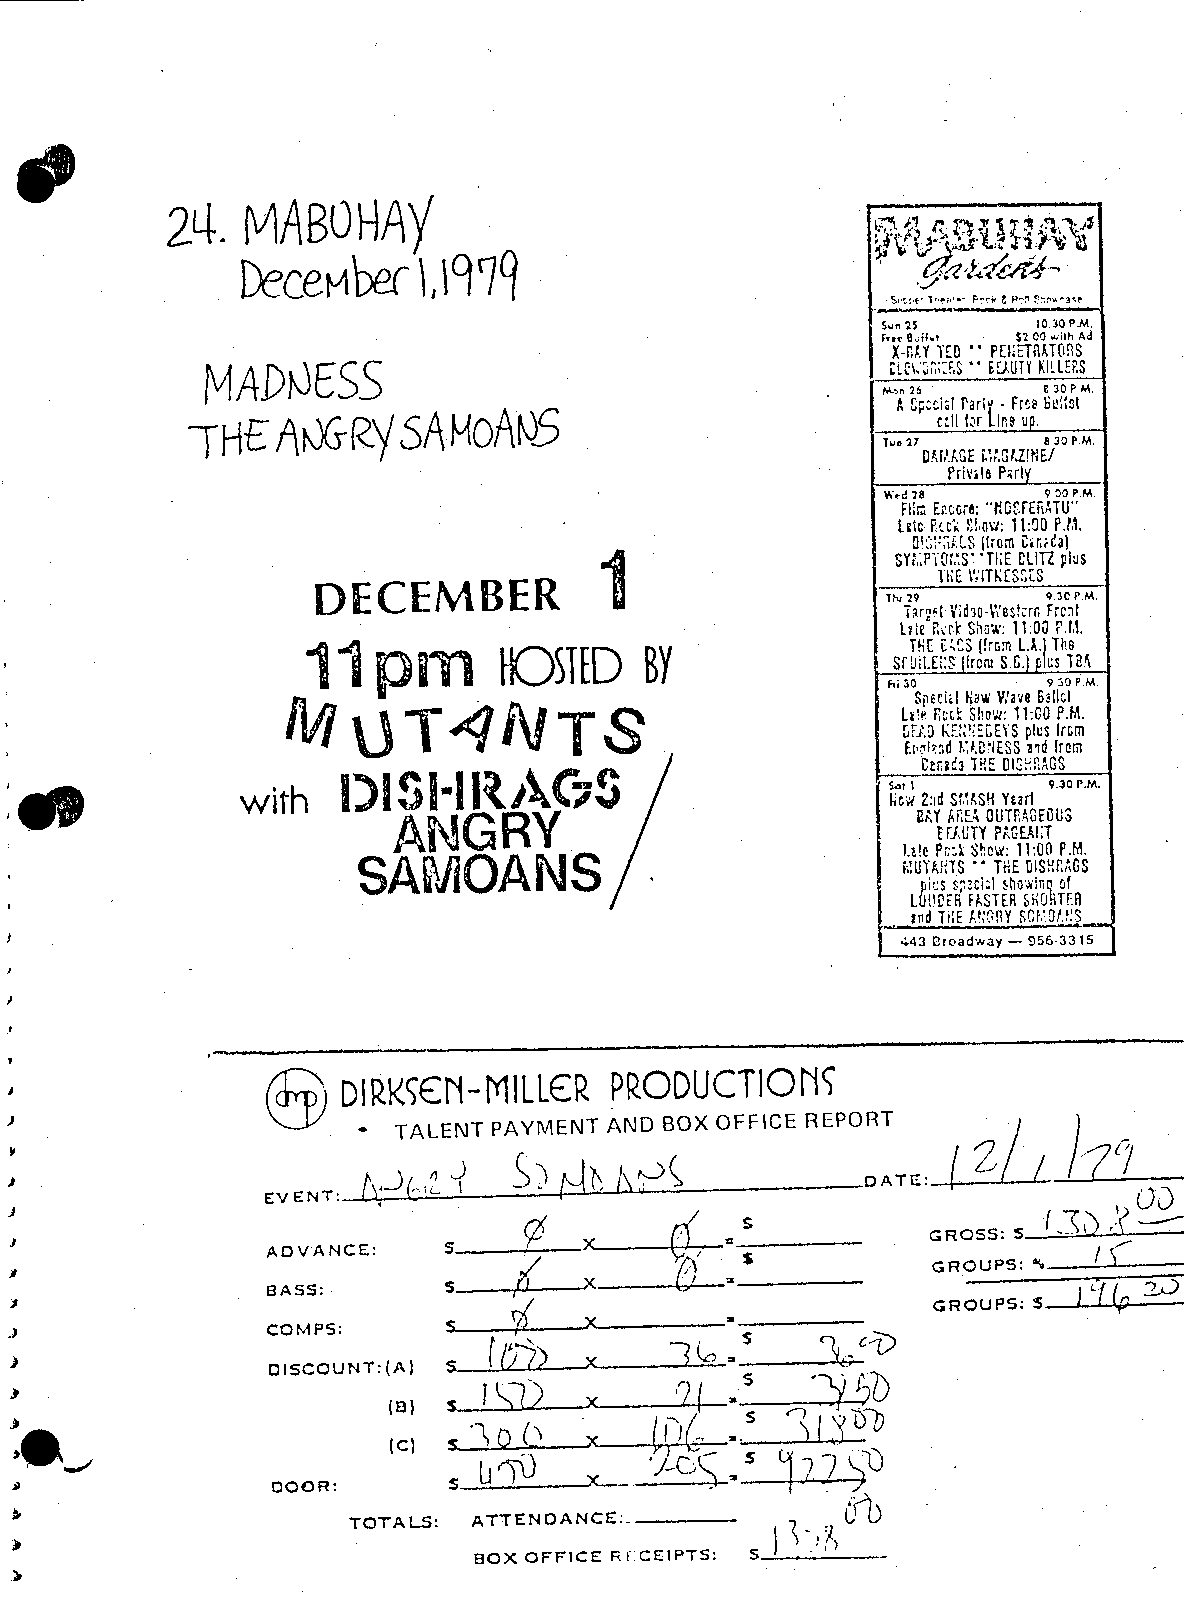 24. MABUHAY
December 1, 1979
MADNESS
THE ANGRY SAMOANS
DECEMBER 1
11pm HOSTED BY
MUTANTS
with DISHRAGS
ANGRY
SAMOANS
MABUHAY
Gardens
Supper Theater Rock & Roll Showcase
Sun 25 10.30 P.M.
Free Buffet $2.00 with Ad
X-RAY TED ** PENETRATORS
** BEAUTY KILLERS
Mon 26 8 30 P.M.
A Special Party - Free Buffet
call for Line up.
Tue 27 8 30 P.M.
DAMAGE MAGAZINE/
Private Party
Wed 28 9 00 P.M.
Film Encore: "NOSFERATU"
Late Rock Show: 11:00 P.M.
DISHRAGS (from Canada)
SYMPTOMS ** THE BLITZ plus
THE WITNESSES
Thu 29 9.30 P.M.
Target Video-Western Front
Late Rock Show: 11:00 P.M.
THE BAGS (from L.A.) The
SPOILERS (from S.C.) plus TBA
Fri 30 9 30 P.M.
Special New Wave Ballet
Late Rock Show: 11:00 P.M.
DEAD KENNEDEYS plus from
England MADNESS and from
Canada THE DISHRAGS
Sat 1 9.30 P.M.
New 2nd SMASH Year!
BAY AREA OUTRAGEOUS
BEAUTY PAGEANT
Late Rock Show: 11:00 P.M.
MUTANTS ** THE DISHRAGS
plus special showing of
LOUDER FASTER SHORTER
and THE ANGRY SOMOANS
443 Broadway — 956-3315
dmp DIRKSEN-MILLER PRODUCTIONS
• TALENT PAYMENT AND BOX OFFICE REPORT
EVENT: ANGRY SOMOANS DATE: 12/1/79
ADVANCE: $ 0 x 0 = $ GROSS: $ 1308.00
BASS: $ 0 x 0 = $ GROUPS: % 15
COMPS: $ 0 x = GROUPS: $ 196 20
DISCOUNT: (A) $ 100 x 36 = $ 3600
(B) $ 150 x 21 = $ 3150
(C) $ 300 x 106 = $ 31800
DOOR: $ 450 x 205 = $ 92250
TOTALS: ATTENDANCE:
BOX OFFICE RECEIPTS: $ 1308 00